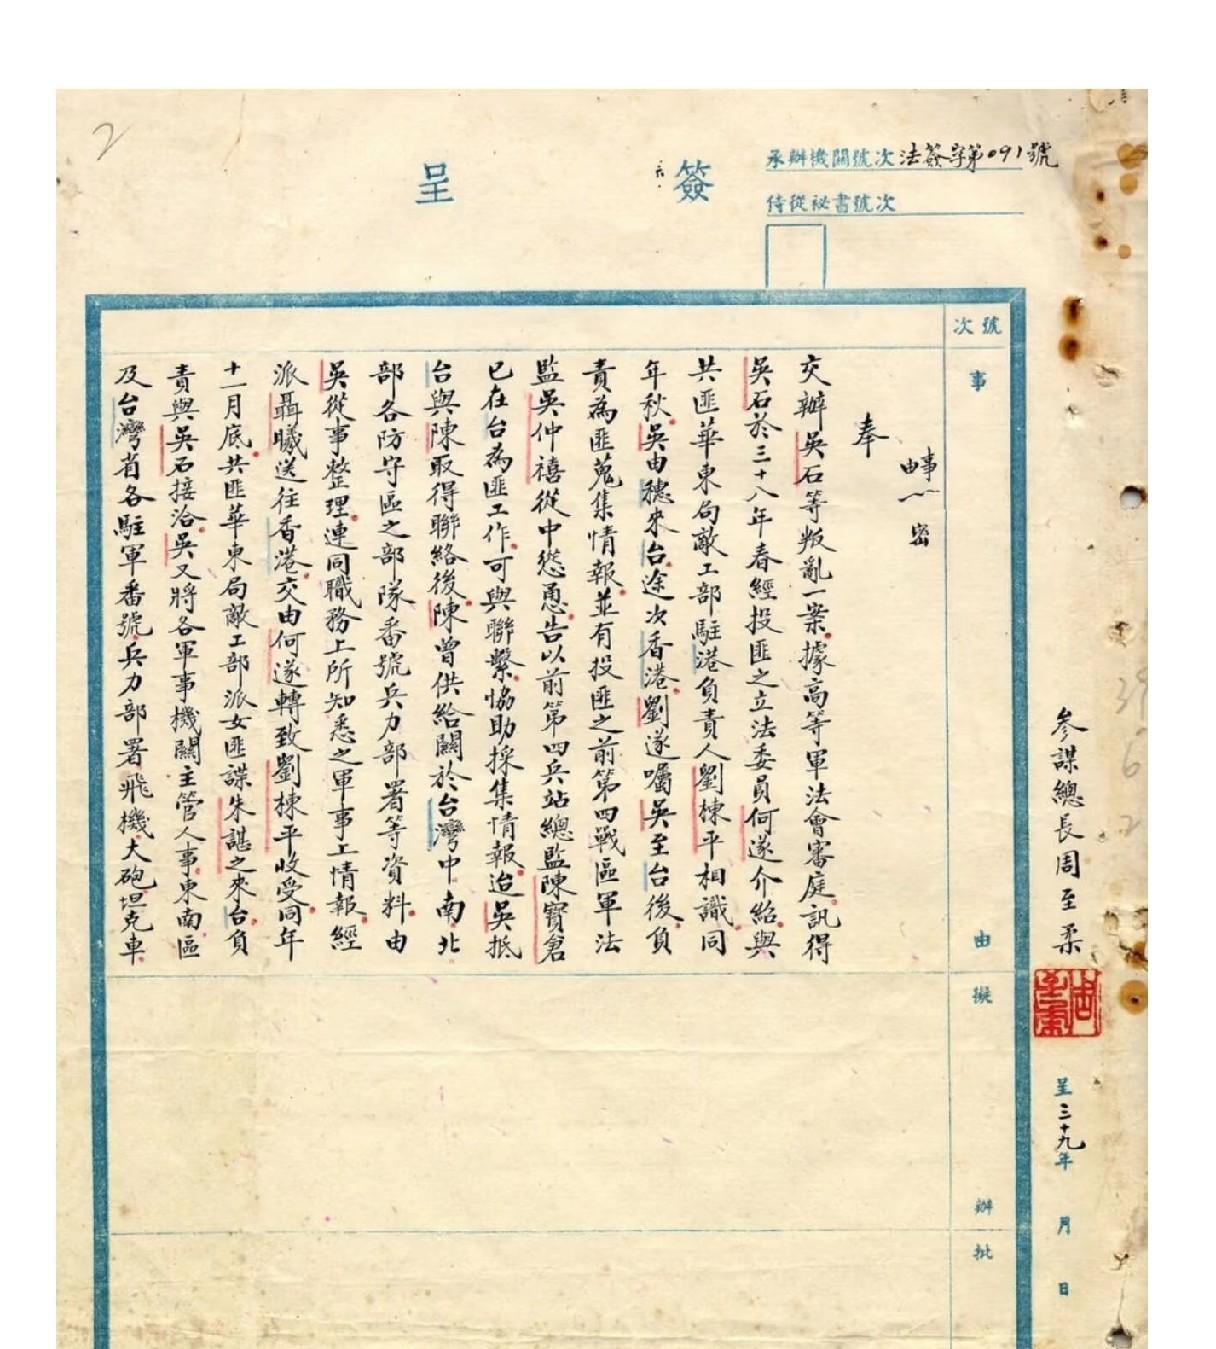 2
簽呈
承辦機關號次 法簽字第091號
侍從秘書號次
參謀總長周至柔
呈 三十九年 月 日
39
6
2
號次
事由
擬辦
批
事由 密
奉
交辦吳石等叛亂一案。據高等軍法會審庭訊得
吳石於三十八年春經投匪之立法委員何遂介紹與
共匪華東局敵工部駐港負責人劉棟平相識同
年秋。吳由穗來台。途次香港。劉遂囑吳至台後。負
責為匪蒐集情報。並有投匪之前第四戰區軍法
監吳仲禧從中慫恿。告以前第四兵站總監陳寶倉
已在台為匪工作。可與聯繫。協助採集情報。迨吳抵
台與陳取得聯絡後。陳曾供給關於台灣中。南。北。
部各防守區之部隊番號兵力部署等資料。由
吳從事整理。連同職務上所知悉之軍事上情報。經
派聶曦送往香港。交由何遂轉致劉棟平收受。同年
十一月底。共匪華東局敵工部派女匪諜朱諶之來台。負
責與吳石接洽。吳又將各軍事機關主管人事。東南區
及台灣省各駐軍番號。兵力部署。飛機。大砲。坦克車。